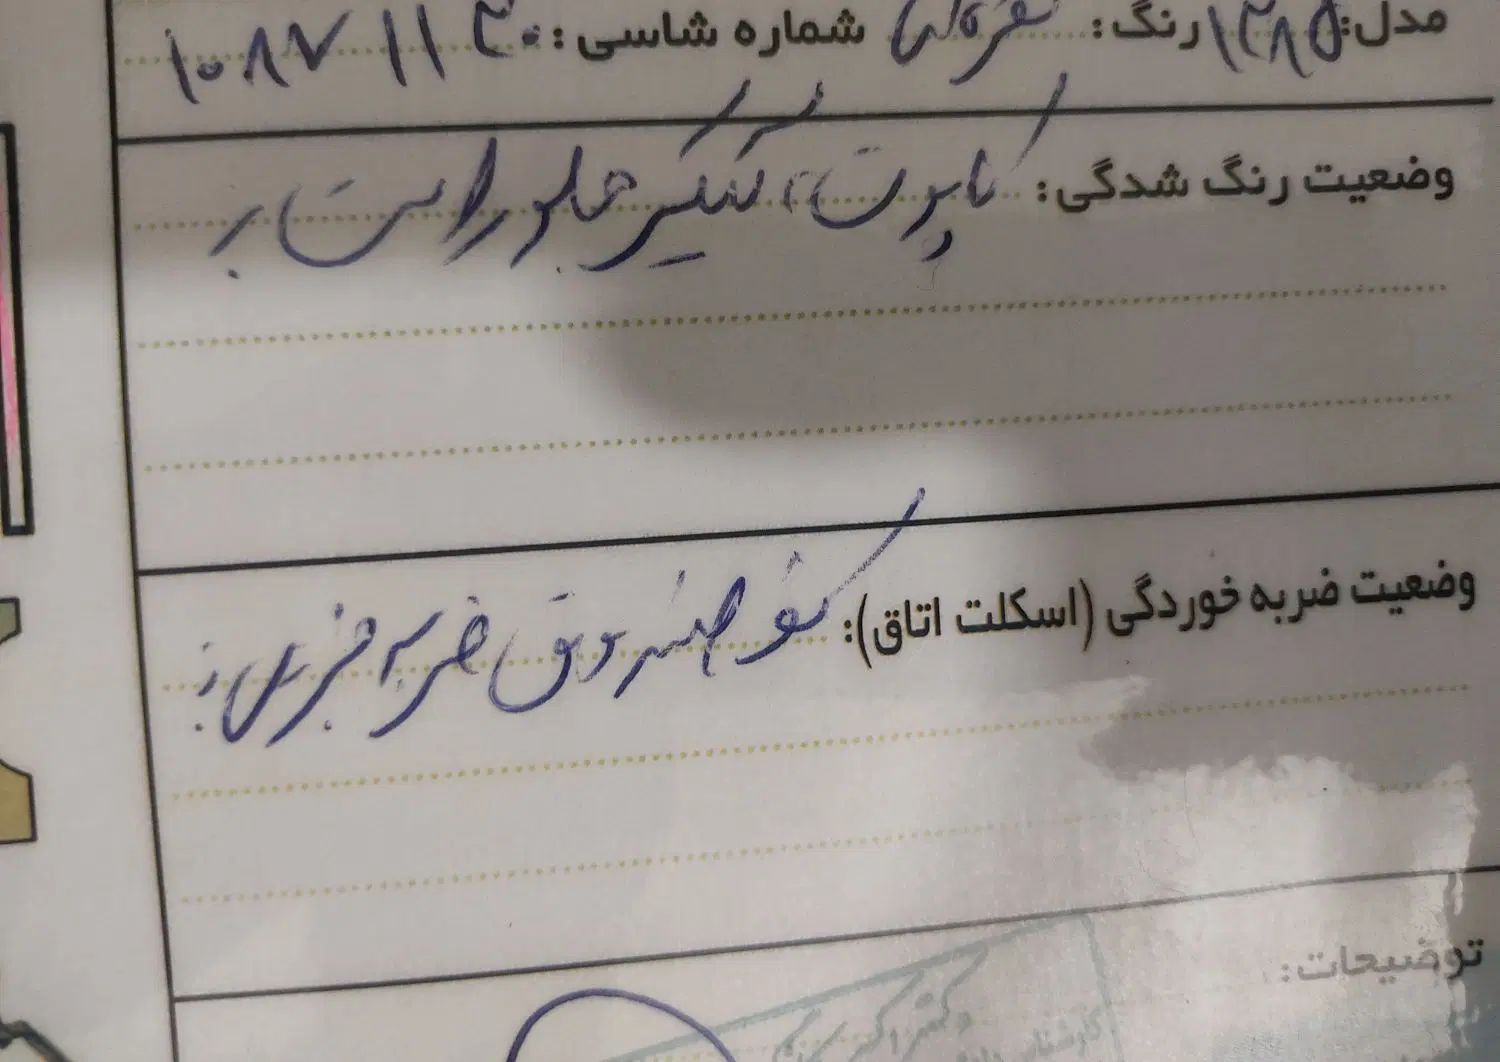 مدل: ۱۳۸۵ رنگ: نقره‌ای شماره شاسی: ۱۰۸۷۱۱۳۰
وضعیت رنگ شدگی: کاپوت، گلگیر جلو راست
وضعیت ضربه خوردگی (اسکلت اتاق): کف صندوق ضربه جزیی
توضیحات: